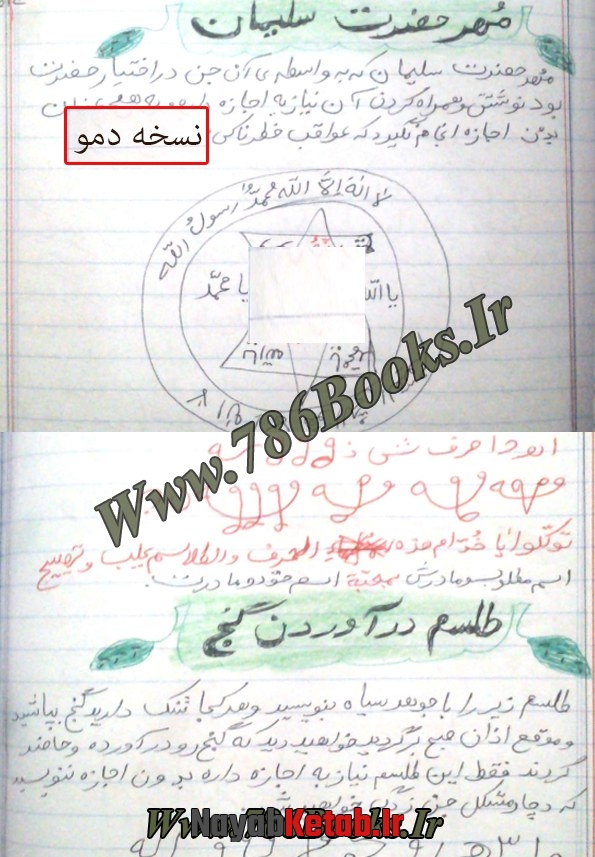 مُهر حضرت سلیمان
مُهر حضرت سلیمان که به واسطه ی آن جن در اختیار حضرت
بود نوشتن و همراه کردن آن نیاز به اجازه دارد
بدون اجازه انجام نگیرد که عواقب خطرناکی
نسخه دمو
لا اله الا الله محمدٌ رسولُ الله
یا الله
یا محمّد
Www.786Books.Ir
توکّلوا یا خُدّام هذه الحرف والطلاسم بجلب و تهییج
اسم مطلوب و مادرش بمحبّة اسم خود و مادرت
طلسم در آوردن گنج
طلسم زیر را با جوهر سیاه بنویسید و هر کجا شک دارید گنج بپاشید
و موقع اذان صبح برگردید خواهید دید که گنج رو در آورده و حاضر
کردند فقط این طلسم نیاز به اجازه داره بدون اجازه ننویسید
که دچار مشکل جنّ زدگی خواهید شد
Www.786Books.Ir
NayabKetab.Ir